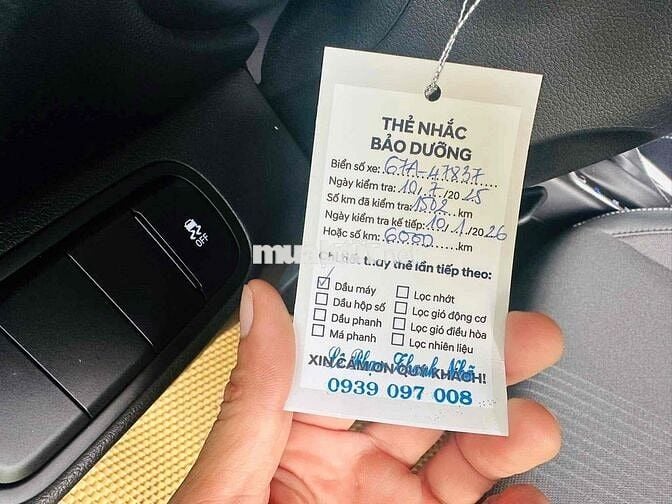 OFF
THẺ NHẮC
BẢO DƯỠNG
Biển số xe: 67A-47837
Ngày kiểm tra: 10.7./2025
Số km đã kiểm tra: 1502 km
Ngày kiểm tra kế tiếp: 10./1./2026
Hoặc số km: 6000 km
Chi tiết thay thế lần tiếp theo:
☑ Dầu máy ☐ Lọc nhớt
☐ Dầu hộp số ☐ Lọc gió động cơ
☐ Dầu phanh ☐ Lọc gió điều hòa
☐ Má phanh ☐ Lọc nhiên liệu
XIN CẢM ƠN QUÝ KHÁCH!
0939 097 008